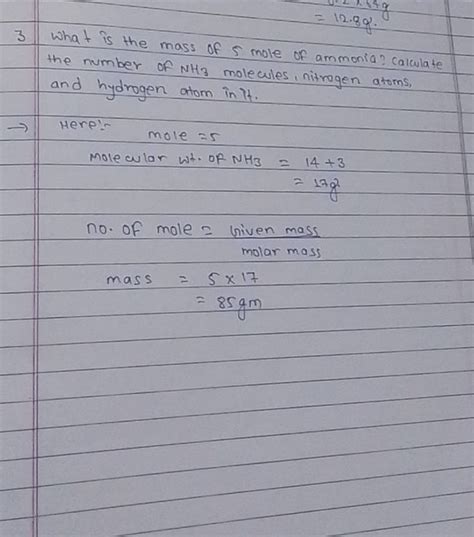 = 12.8g.
3 What is the mass of 5 mole of ammonia? Calculate
the number of NH3 molecules, nitrogen atoms,
and hydrogen atom in it.
→ Here:-
mole = 5
Molecular wt. of NH3 = 14 + 3
= 17g
no. of mole = Given mass
molar mass
mass = 5 x 17
= 85gm